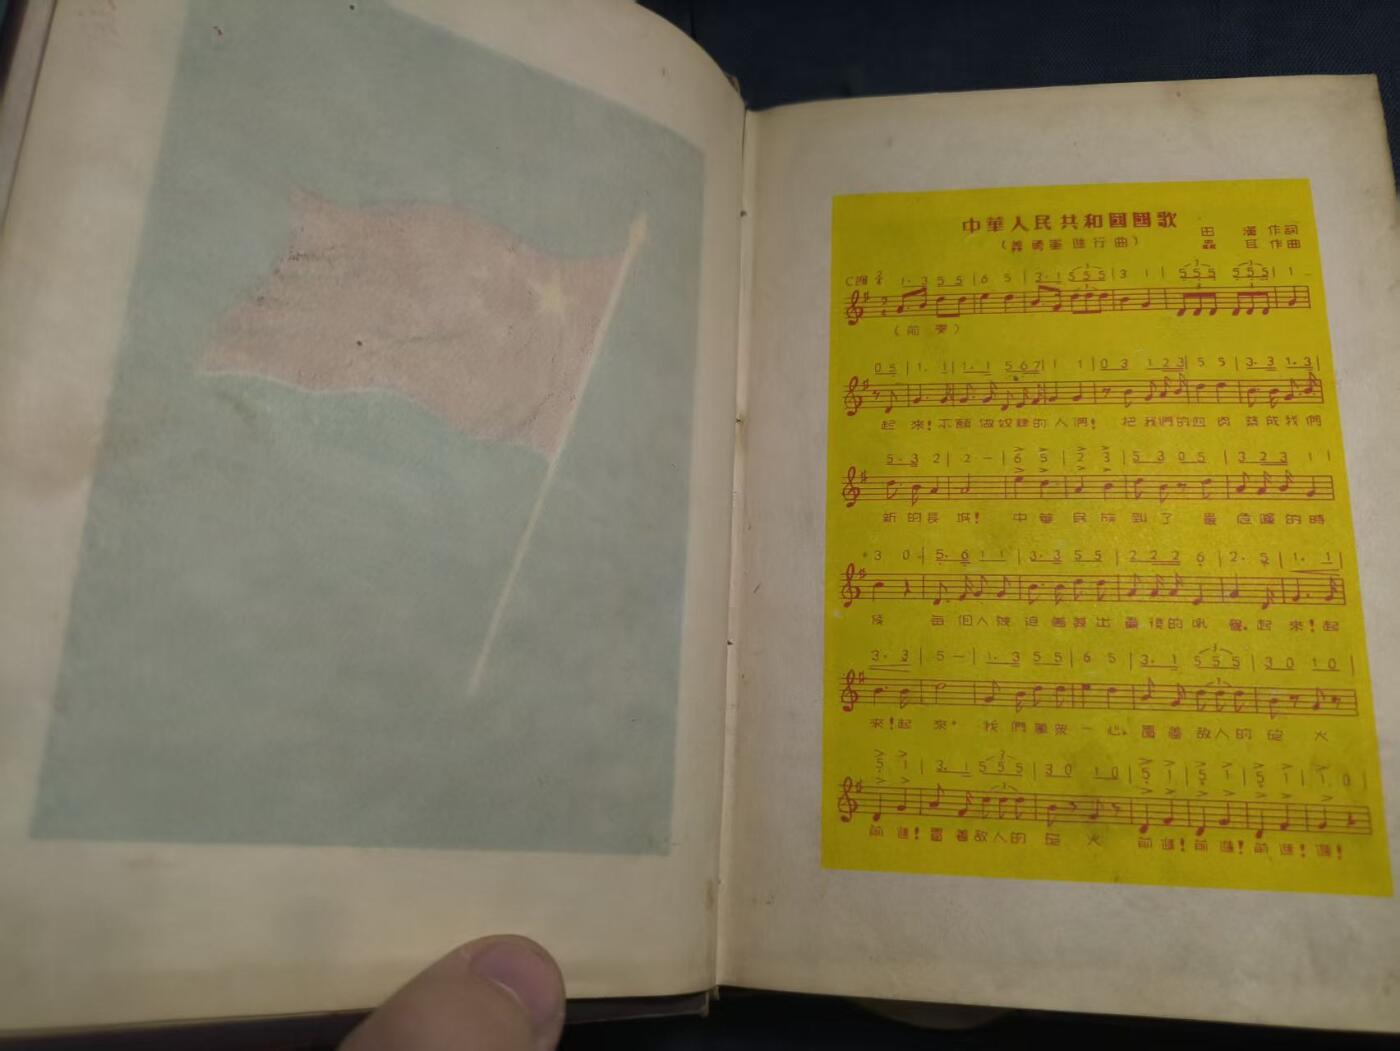 中華人民共和國國歌
(義勇軍進行曲)
田 漢 作詞
聶 耳 作曲
C調 2/4 1. 3 5 5 | 6 5 | 3. 1 5 5 5 | 3 1 | 5 5 5 5 5 5 | 1 —
(前 奏)
0 5 | 1. 1 | 1. 1 5 6 7 | 1 1 | 0 3 1 2 3 | 5 5 | 3. 3 1. 3 |
起 來!不願做奴隸的人們! 把我們的血肉築成我們
5. 3 2 | 2 — | 6 5 | 2 3 | 5 3 0 5 | 3 2 3 1 |
新的長城! 中華民族到了 最危險的時
3 0 | 5. 6 1 1 | 3. 3 5 5 | 2 2 2 6 | 2. 5 | 1. 1
候 每個人被迫着發出最後的吼聲。起 來!起
3. 3 | 5 — | 1. 3 5 5 | 6 5 | 3. 1 5 5 5 | 3 0 1 0 |
來!起 來。 我們萬衆一心,冒着敵人的砲 火
5 1 | 3. 1 5 5 5 | 3 0 1 0 | 5 1 | 5 1 | 5 1 | 1 0
前進!冒着敵人的砲 火 前進!前進!前進!進!